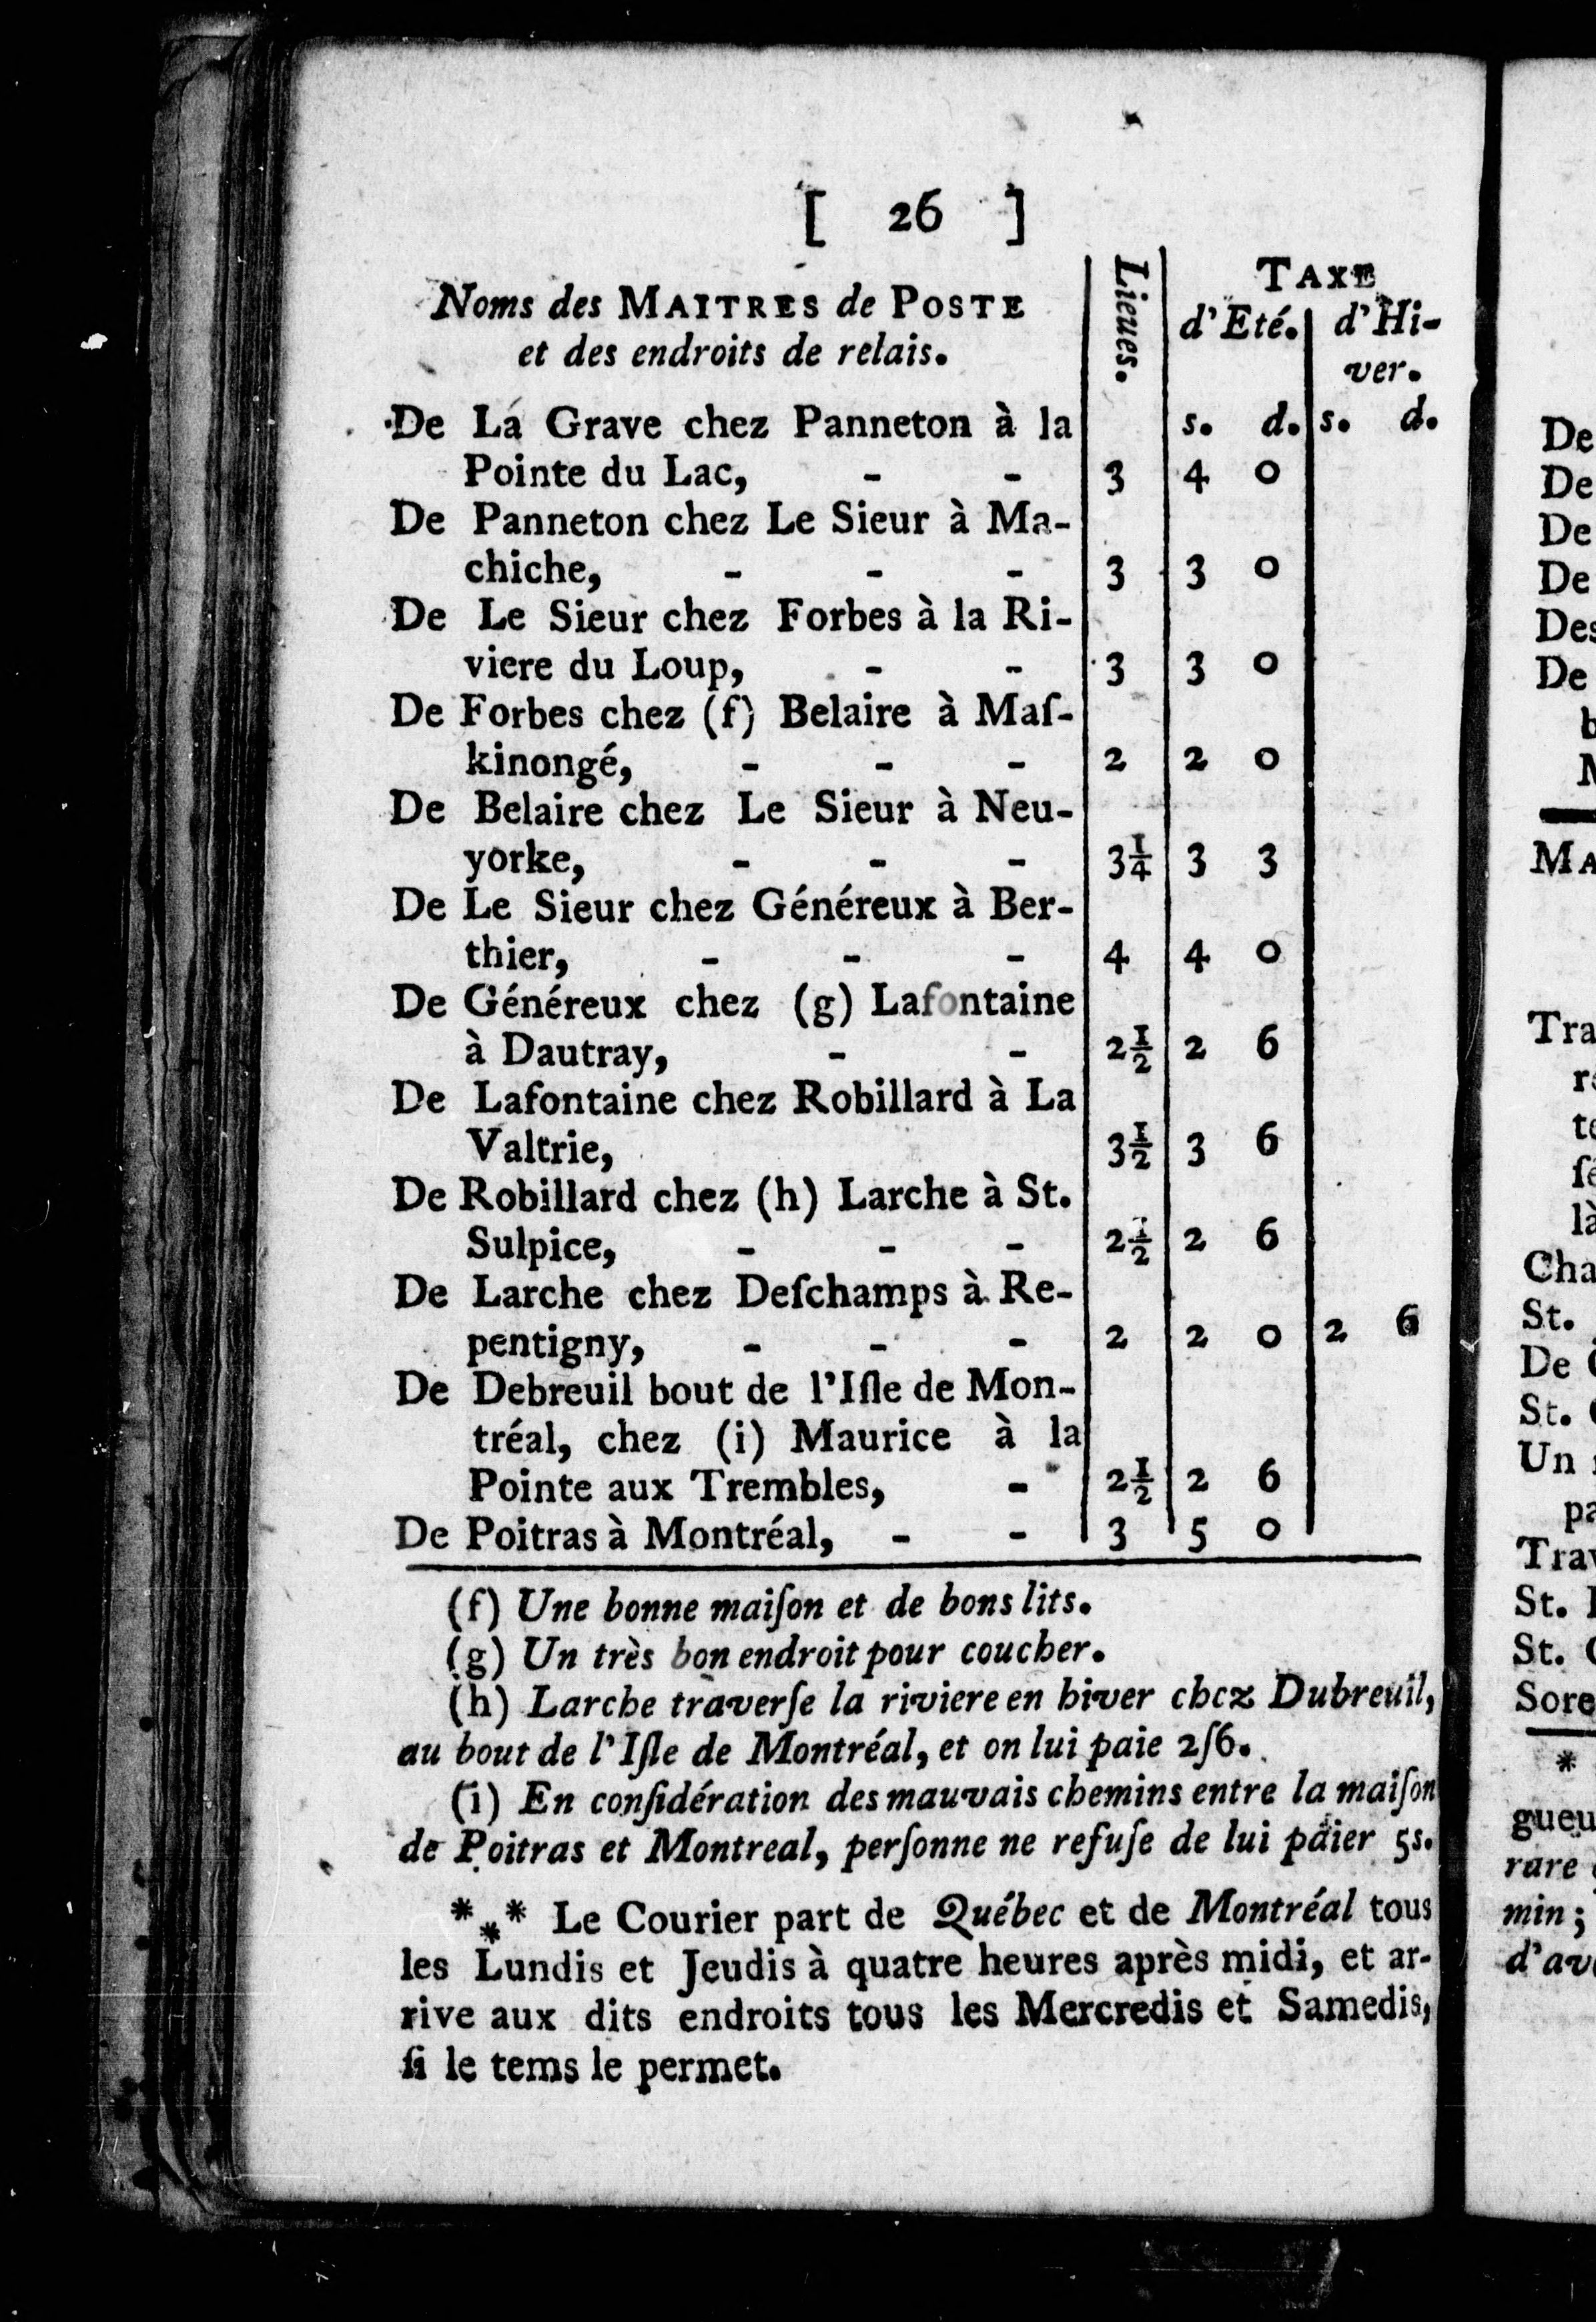 [ 26 ]
Noms des MAITRES de POSTE
et des endroits de relais.
Lieues.
TAXE
d'Eté. d'Hi-
ver.
De La Grave chez Panneton à la s. d. s. d.
Pointe du Lac, - - 3 4 0
De Panneton chez Le Sieur à Ma-
chiche, - - - 3 3 0
De Le Sieur chez Forbes à la Ri-
viere du Loup, - - 3 3 0
De Forbes chez (f) Belaire à Maſ-
kinongé, - - - 2 2 0
De Belaire chez Le Sieur à Neu-
yorke, - - - 3¼ 3 3
De Le Sieur chez Généreux à Ber-
thier, - - - 4 4 0
De Généreux chez (g) Lafontaine
à Dautray, - - 2½ 2 6
De Lafontaine chez Robillard à La
Valtrie, 3½ 3 6
De Robillard chez (h) Larche à St.
Sulpice, - - - 2½ 2 6
De Larche chez Deſchamps à Re-
pentigny, - - - 2 2 0 2 6
De Debreuil bout de l'Iſle de Mon-
tréal, chez (i) Maurice à la
Pointe aux Trembles, - 2½ 2 6
De Poitras à Montréal, - - 3 5 0
(f) Une bonne maiſon et de bons lits.
(g) Un très bon endroit pour coucher.
(h) Larche traverſe la riviere en hiver chez Dubreuil,
au bout de l'Iſle de Montréal, et on lui paie 2ſ6.
(i) En conſidération des mauvais chemins entre la maiſon
de Poitras et Montreal, perſonne ne refuſe de lui paier 5s.
*⁎* Le Courier part de Québec et de Montréal tous
les Lundis et Jeudis à quatre heures après midi, et ar-
rive aux dits endroits tous les Mercredis et Samedis,
ſi le tems le permet.
De
De
De
De
Des
De
b
MA
Tra
Cha
St.
De
St.
Un
pa
Trav
St.
St.
Sore
*
gueu
rare
min;
d'av